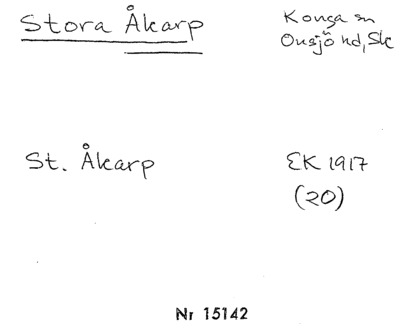 Stora Åkarp
Konga sn
Onsjö hd, Sk
St. Åkarp
EK 1917
(20)
Nr 15142